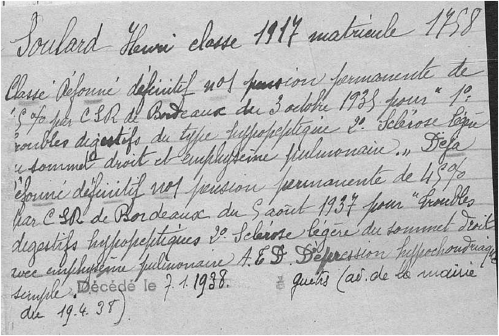 Soulard Henri classe 1917 matricule 1758
Classé Réformé définitif no1 pension permanente de
% par CSR de Bordeaux du 3 octobre 1935 pour "1°
troubles digestifs du type hypopeptique 2° Sclérose légère
du sommet droit et emphysème pulmonaire." Déjà
réformé définitif no1 pension permanente de 45%
par CSR de Bordeaux du 5 août 1937 pour "troubles
digestifs hypopeptiques 2° Sclerose légère du sommet droit
avec emphysème pulmonaire A.E.D. Dépression hypochondriaque
simple. Décédé le 7.1.1938. à (av. de la mairie
du 19.4.38).